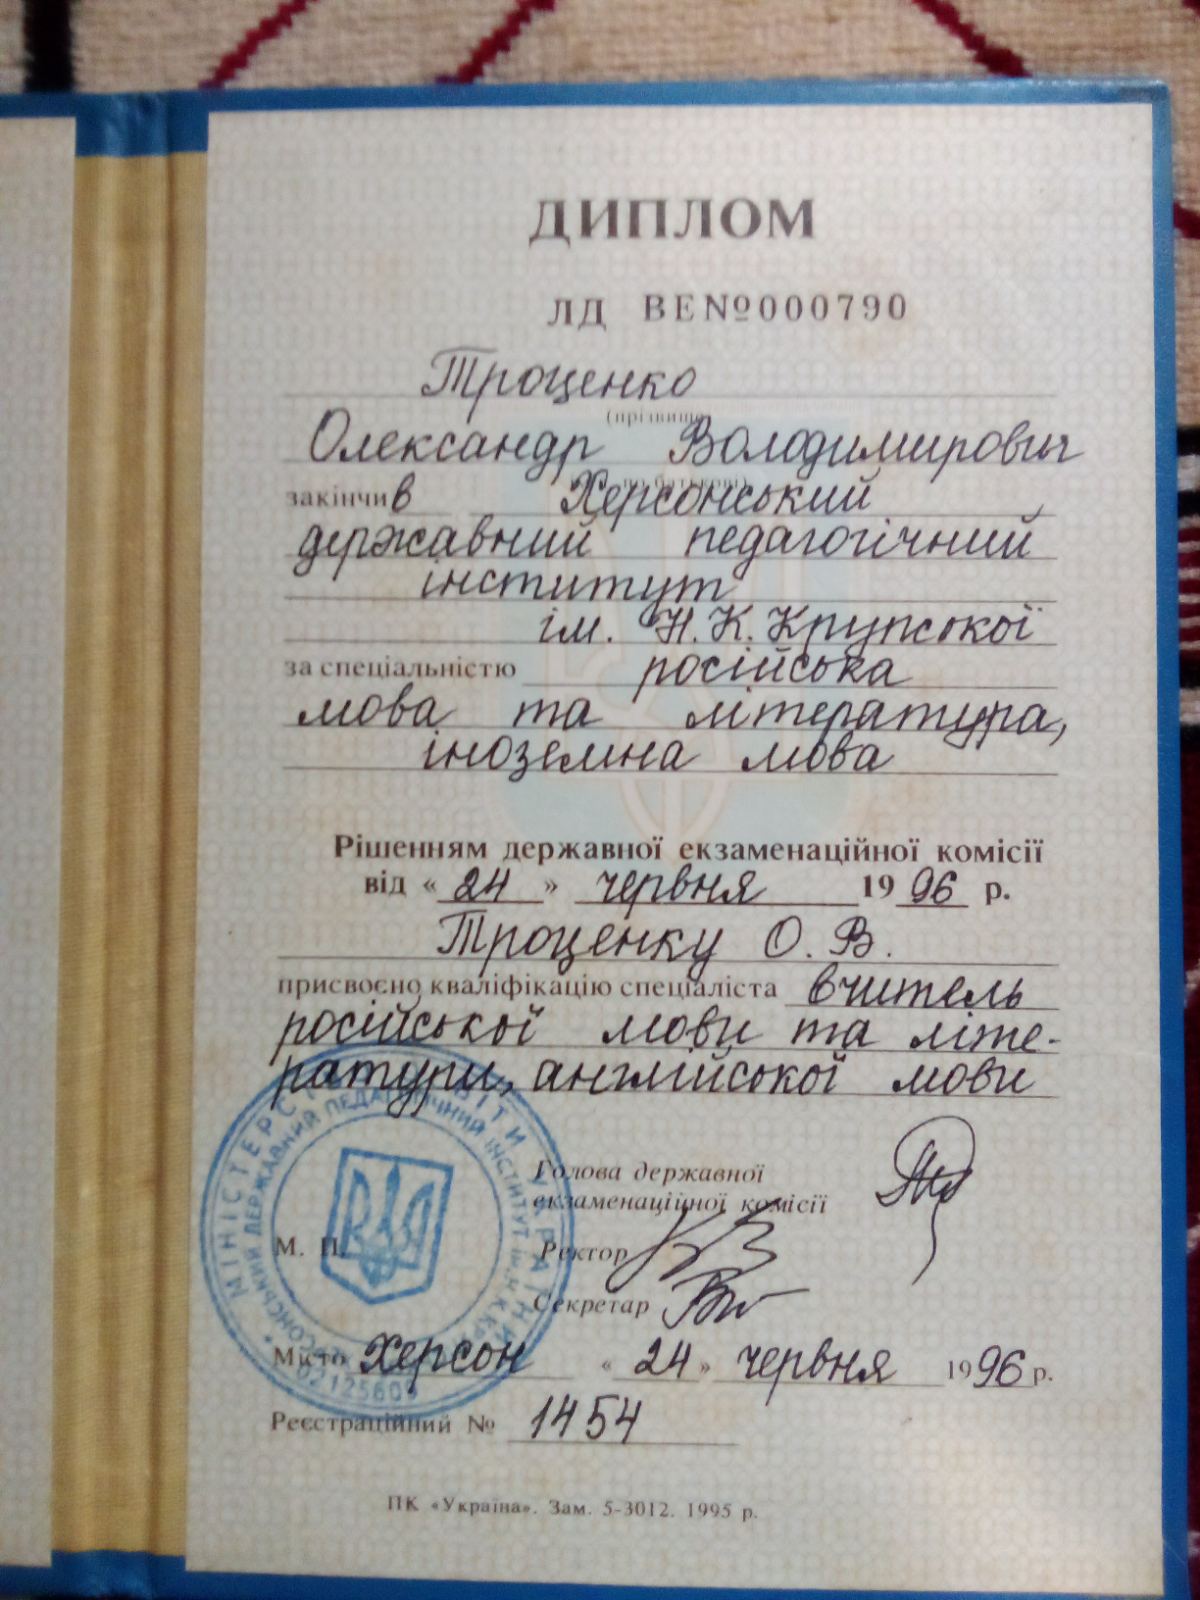 ДИПЛОМ
ЛД ВЕ№000790
Троценко
(прізвище
Олександр Володимирович
закінчив Херсонський
державний педагогічний
інститут
ім. Н.К.Крупської
за спеціальністю російська
мова та література,
іноземна мова
Рішенням державної екзаменаційної комісії
від « 24 » червня 1996 р.
Троценку О.В.
присвоєно кваліфікацію спеціаліста вчитель
російської мови та літе-
ратури, англійської мови
Голова державної
екзаменаційної комісії
М. П.
Ректор
Секретар
Місто Херсон « 24 » червня 1996 р.
Реєстраційний № 1454
ПК «Україна». Зам. 5-3012. 1995 р.